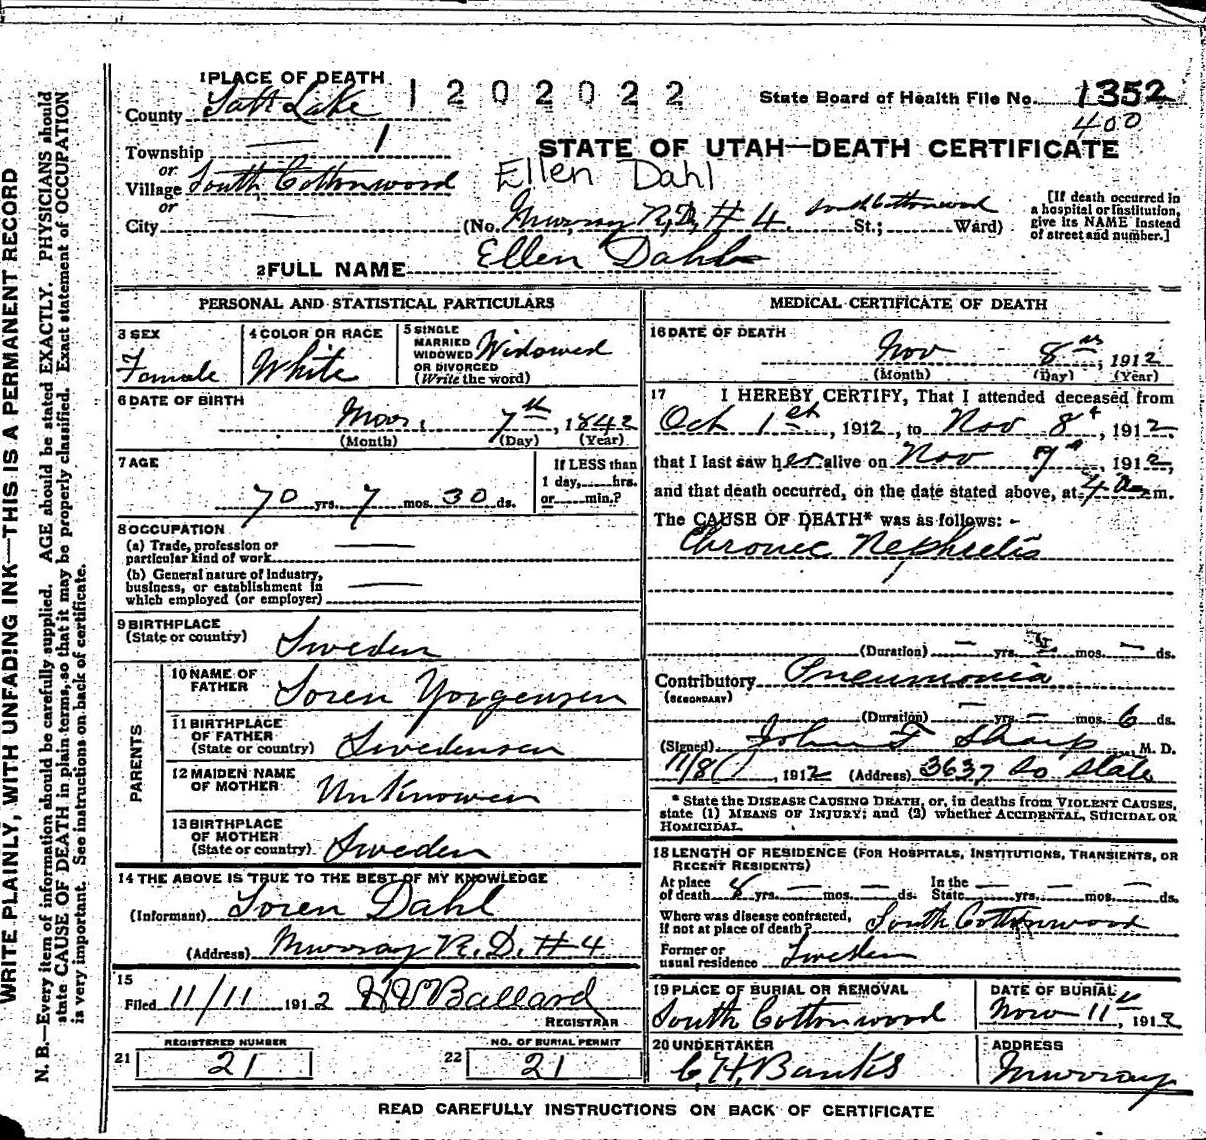 1 PLACE OF DEATH 1202022 State Board of Health File No. 1352
County Salt Lake 400
Township 1 STATE OF UTAH—DEATH CERTIFICATE
or
Village South Cottonwood Ellen Dahl
or
City (No. Murray R.D. #4. South Cottonwood St.; Ward) [If death occurred in a hospital or institution, give its NAME instead of street and number.]
2 FULL NAME Ellen Dahl
PERSONAL AND STATISTICAL PARTICULARS
3 SEX Female
4 COLOR OR RACE White
5 SINGLE MARRIED WIDOWED OR DIVORCED (Write the word) Widowed
6 DATE OF BIRTH
Mar. 7th, 1842
(Month) (Day) (Year)
7 AGE
70 yrs. 7 mos. 30 ds.
If LESS than 1 day, hrs. or min.?
8 OCCUPATION
(a) Trade, profession or particular kind of work
(b) General nature of industry, business, or establishment in which employed (or employer)
9 BIRTHPLACE
(State or country) Sweden
PARENTS
10 NAME OF FATHER Soren Yorgensen
11 BIRTHPLACE OF FATHER (State or country) Swedensen
12 MAIDEN NAME OF MOTHER Unknowen
13 BIRTHPLACE OF MOTHER (State or country) Sweden
14 THE ABOVE IS TRUE TO THE BEST OF MY KNOWLEDGE
(Informant) Soren Dahl
(Address) Murray R.D. #4
15
Filed 11/11 1912 HV Ballard
REGISTRAR
21 REGISTERED NUMBER 21
22 NO. OF BURIAL PERMIT 21
MEDICAL CERTIFICATE OF DEATH
16 DATE OF DEATH
Nov 8th, 1912
(Month) (Day) (Year)
17 I HEREBY CERTIFY, That I attended deceased from
Oct 1st, 1912, to Nov 8th, 1912.
that I last saw her alive on Nov 7th, 1912,
and that death occurred, on the date stated above, at 4 a m.
The CAUSE OF DEATH* was as follows:
Chronic Nephritis
(Duration) yrs. mos. ds.
Contributory Pneumonia
(SECONDARY)
(Duration) yrs. mos. 6 ds.
(Signed) John F Sharp, M. D.
11/8, 1912 (Address) 3637 So State
* State the DISEASE CAUSING DEATH, or, in deaths from VIOLENT CAUSES,
state (1) MEANS OF INJURY; and (2) whether ACCIDENTAL, SUICIDAL OR
HOMICIDAL.
18 LENGTH OF RESIDENCE (FOR HOSPITALS, INSTITUTIONS, TRANSIENTS, OR
RECENT RESIDENTS)
At place of death 8 yrs. mos. ds. In the State yrs. mos. ds.
Where was disease contracted, if not at place of death? South Cottonwood
Former or usual residence Sweden
19 PLACE OF BURIAL OR REMOVAL South Cottonwood
DATE OF BURIAL Nov 11th, 1912
20 UNDERTAKER C. H. Banks
ADDRESS Murray
READ CAREFULLY INSTRUCTIONS ON BACK OF CERTIFICATE
WRITE PLAINLY, WITH UNFADING INK—THIS IS A PERMANENT RECORD
N. B.—Every item of information should be carefully supplied. AGE should be stated EXACTLY. PHYSICIANS should
state CAUSE OF DEATH in plain terms, so that it may be properly classified. Exact statement of OCCUPATION
is very important. See instructions on back of certificate.